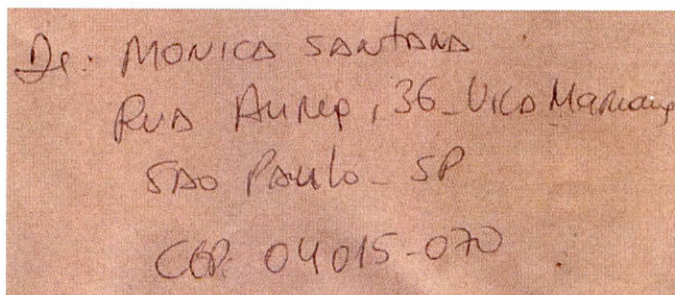 De: MONICA SANTANA
RUA Aurea, 36 - VILA Mariana
SAO PAulo - SP
CEP: 04015-070